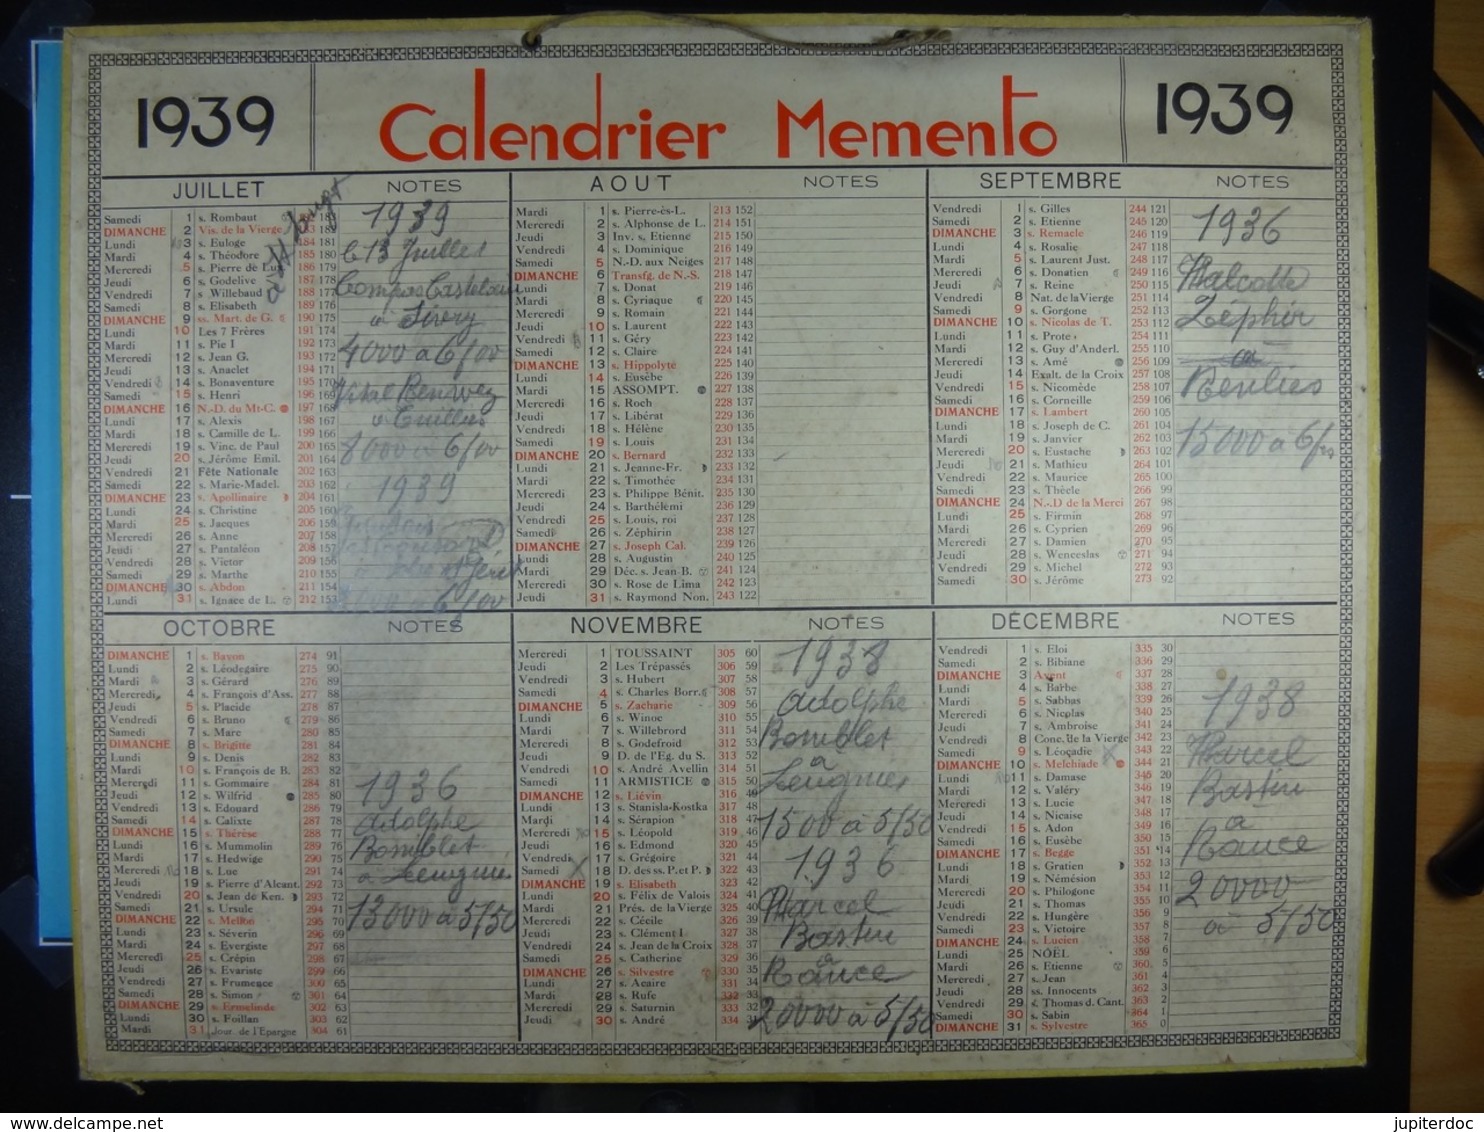 1939
Calendrier Memento
1939
JUILLET
NOTES
Samedi 1 s. Rombaut
DIMANCHE 2 Vis. de la Vierge
Lundi 3 s. Euloge 184 181
Mardi 4 s. Théodore 185 180
Mercredi 5 s. Pierre de Lux. 186 179
Jeudi 6 s. Godelive 187 178
Vendredi 7 s. Willebaud 188 177
Samedi 8 s. Elisabeth 189 176
DIMANCHE 9 ss. Mart. de G. 190 175
Lundi 10 Les 7 Frères 191 174
Mardi 11 s. Pie I 192 173
Mercredi 12 s. Jean G. 193 172
Jeudi 13 s. Anaclet 194 171
Vendredi 14 s. Bonaventure 195 170
Samedi 15 s. Henri 196 169
DIMANCHE 16 N.-D. du Mt-C. 197 168
Lundi 17 s. Alexis 198 167
Mardi 18 s. Camille de L. 199 166
Mercredi 19 s. Vinc. de Paul 200 165
Jeudi 20 s. Jérôme Emil. 201 164
Vendredi 21 Fête Nationale 202 163
Samedi 22 s. Marie-Madel. 203 162
DIMANCHE 23 s. Apollinaire 204 161
Lundi 24 s. Christine 205 160
Mardi 25 s. Jacques 206 159
Mercredi 26 s. Anne 207 158
Jeudi 27 s. Pantaléon 208 157
Vendredi 28 s. Victor 209 156
Samedi 29 s. Marthe 210 155
DIMANCHE 30 s. Abdon 211 154
Lundi 31 s. Ignace de L. 212 153
1939
13 Juillet
4000 à 6/00
8000 à 6/00
1939
à 6/00
AOUT
NOTES
Mardi 1 s. Pierre-ès-L. 213 152
Mercredi 2 s. Alphonse de L. 214 151
Jeudi 3 Inv. s. Etienne 215 150
Vendredi 4 s. Dominique 216 149
Samedi 5 N.-D. aux Neiges 217 148
DIMANCHE 6 Transfg. de N.-S. 218 147
Lundi 7 s. Donat 219 146
Mardi 8 s. Cyriaque 220 145
Mercredi 9 s. Romain 221 144
Jeudi 10 s. Laurent 222 143
Vendredi 11 s. Géry 223 142
Samedi 12 s. Claire 224 141
DIMANCHE 13 s. Hippolyte 225 140
Lundi 14 s. Eusèbe 226 139
Mardi 15 ASSOMPT. 227 138
Mercredi 16 s. Roch 228 137
Jeudi 17 s. Libérat 229 136
Vendredi 18 s. Hélène 230 135
Samedi 19 s. Louis 231 134
DIMANCHE 20 s. Bernard 232 133
Lundi 21 s. Jeanne-Fr. 233 132
Mardi 22 s. Timothée 234 131
Mercredi 23 s. Philippe Bénit. 235 130
Jeudi 24 s. Barthélemi 236 129
Vendredi 25 s. Louis, roi 237 128
Samedi 26 s. Zéphirin 238 127
DIMANCHE 27 s. Joseph Cal. 239 126
Lundi 28 s. Augustin 240 125
Mardi 29 Déc. s. Jean B. 241 124
Mercredi 30 s. Rose de Lima 242 123
Jeudi 31 s. Raymond Non. 243 122
SEPTEMBRE
NOTES
Vendredi 1 s. Gilles 244 121
Samedi 2 s. Etienne 245 120
DIMANCHE 3 s. Remacle 246 119
Lundi 4 s. Rosalie 247 118
Mardi 5 s. Laurent Just. 248 117
Mercredi 6 s. Donatien 249 116
Jeudi 7 s. Reine 250 115
Vendredi 8 Nat. de la Vierge 251 114
Samedi 9 s. Gorgone 252 113
DIMANCHE 10 s. Nicolas de T. 253 112
Lundi 11 s. Prote 254 111
Mardi 12 s. Guy d'Anderl. 255 110
Mercredi 13 s. Amé 256 109
Jeudi 14 Exalt. de la Croix 257 108
Vendredi 15 s. Nicomède 258 107
Samedi 16 s. Corneille 259 106
DIMANCHE 17 s. Lambert 260 105
Lundi 18 s. Joseph de C. 261 104
Mardi 19 s. Janvier 262 103
Mercredi 20 s. Eustache 263 102
Jeudi 21 s. Mathieu 264 101
Vendredi 22 s. Maurice 265 100
Samedi 23 s. Thècle 266 99
DIMANCHE 24 N.-D de la Merci 267 98
Lundi 25 s. Firmin 268 97
Mardi 26 s. Cyprien 269 96
Mercredi 27 s. Damien 270 95
Jeudi 28 s. Wenceslas 271 94
Vendredi 29 s. Michel 272 93
Samedi 30 s. Jérôme 273 92
1936
Malcotte
Zéphir
à
Renlies
15000 à 6/
OCTOBRE
NOTES
DIMANCHE 1 s. Bavon 274 91
Lundi 2 s. Léodegaire 275 90
Mardi 3 s. Gérard 276 89
Mercredi 4 s. François d'Ass. 277 88
Jeudi 5 s. Placide 278 87
Vendredi 6 s. Bruno 279 86
Samedi 7 s. Marc 280 85
DIMANCHE 8 s. Brigitte 281 84
Lundi 9 s. Denis 282 83
Mardi 10 s. François de B. 283 82
Mercredi 11 s. Gommaire 284 81
Jeudi 12 s. Wilfrid 285 80
Vendredi 13 s. Edouard 286 79
Samedi 14 s. Calixte 287 78
DIMANCHE 15 s. Thérèse 288 77
Lundi 16 s. Mummolin 289 76
Mardi 17 s. Hedwige 290 75
Mercredi 18 s. Luc 291 74
Jeudi 19 s. Pierre d'Alcant. 292 73
Vendredi 20 s. Jean de Ken. 293 72
Samedi 21 s. Ursule 294 71
DIMANCHE 22 s. Mellon 295 70
Lundi 23 s. Séverin 296 69
Mardi 24 s. Evergiste 297 68
Mercredi 25 s. Crépin 298 67
Jeudi 26 s. Evariste 299 66
Vendredi 27 s. Frumence 300 65
Samedi 28 s. Simon 301 64
DIMANCHE 29 s. Ermelinde 302 63
Lundi 30 s. Foillan 303 62
Mardi 31 Jour. de l'Epargne 304 61
1936
Adolphe
Bomblet
à Leugnies
13000 à 5/50
NOVEMBRE
NOTES
Mercredi 1 TOUSSAINT 305 60
Jeudi 2 Les Trépassés 306 59
Vendredi 3 s. Hubert 307 58
Samedi 4 s. Charles Borr. 308 57
DIMANCHE 5 s. Zacharie 309 56
Lundi 6 s. Winoc 310 55
Mardi 7 s. Willebrord 311 54
Mercredi 8 s. Godefroid 312 53
Jeudi 9 D. de l'Eg. du S. 313 52
Vendredi 10 s. André Avellin 314 51
Samedi 11 ARMISTICE 315 50
DIMANCHE 12 s. Liévin 316 49
Lundi 13 s. Stanisla-Kostka 317 48
Mardi 14 s. Sérapion 318 47
Mercredi 15 s. Léopold 319 46
Jeudi 16 s. Edmond 320 45
Vendredi 17 s. Grégoire 321 44
Samedi 18 D. des ss. P. et P. 322 43
DIMANCHE 19 s. Elisabeth 323 42
Lundi 20 s. Félix de Valois 324 41
Mardi 21 Prés. de la Vierge 325 40
Mercredi 22 s. Cécile 326 39
Jeudi 23 s. Clément I 327 38
Vendredi 24 s. Jean de la Croix 328 37
Samedi 25 s. Catherine 329 36
DIMANCHE 26 s. Silvestre 330 35
Lundi 27 s. Acaire 331 34
Mardi 28 s. Rufe 332 33
Mercredi 29 s. Saturnin 333 32
Jeudi 30 s. André 334 31
1938
Adolphe
Bomblet
à
Leugnies
1500 à 5/50
1936
Marcel
Bastin
à
Rance
20000 à 5/50
DÉCEMBRE
NOTES
Vendredi 1 s. Eloi 335 30
Samedi 2 s. Bibiane 336 29
DIMANCHE 3 Avent 337 28
Lundi 4 s. Barbe 338 27
Mardi 5 s. Sabbas 339 26
Mercredi 6 s. Nicolas 340 25
Jeudi 7 s. Ambroise 341 24
Vendredi 8 Conc. de la Vierge 342 23
Samedi 9 s. Léocadie 343 22
DIMANCHE 10 s. Melchiade 344 21
Lundi 11 s. Damase 345 20
Mardi 12 s. Valéry 346 19
Mercredi 13 s. Lucie 347 18
Jeudi 14 s. Nicaise 348 17
Vendredi 15 s. Adon 349 16
Samedi 16 s. Eusèbe 350 15
DIMANCHE 17 s. Begge 351 14
Lundi 18 s. Gratien 352 13
Mardi 19 s. Némésion 353 12
Mercredi 20 s. Philogone 354 11
Jeudi 21 s. Thomas 355 10
Vendredi 22 s. Hungère 356 9
Samedi 23 s. Victoire 357 8
DIMANCHE 24 s. Lucien 358 7
Lundi 25 NOËL 359 6
Mardi 26 s. Etienne 360 5
Mercredi 27 s. Jean 361 4
Jeudi 28 ss. Innocents 362 3
Vendredi 29 s. Thomas d. Cant. 363 2
Samedi 30 s. Sabin 364 1
DIMANCHE 31 s. Sylvestre 365 0
1938
Marcel
Bastin
à
Rance
20000
à 5/50
www.delcampe.net
jupiterdoc